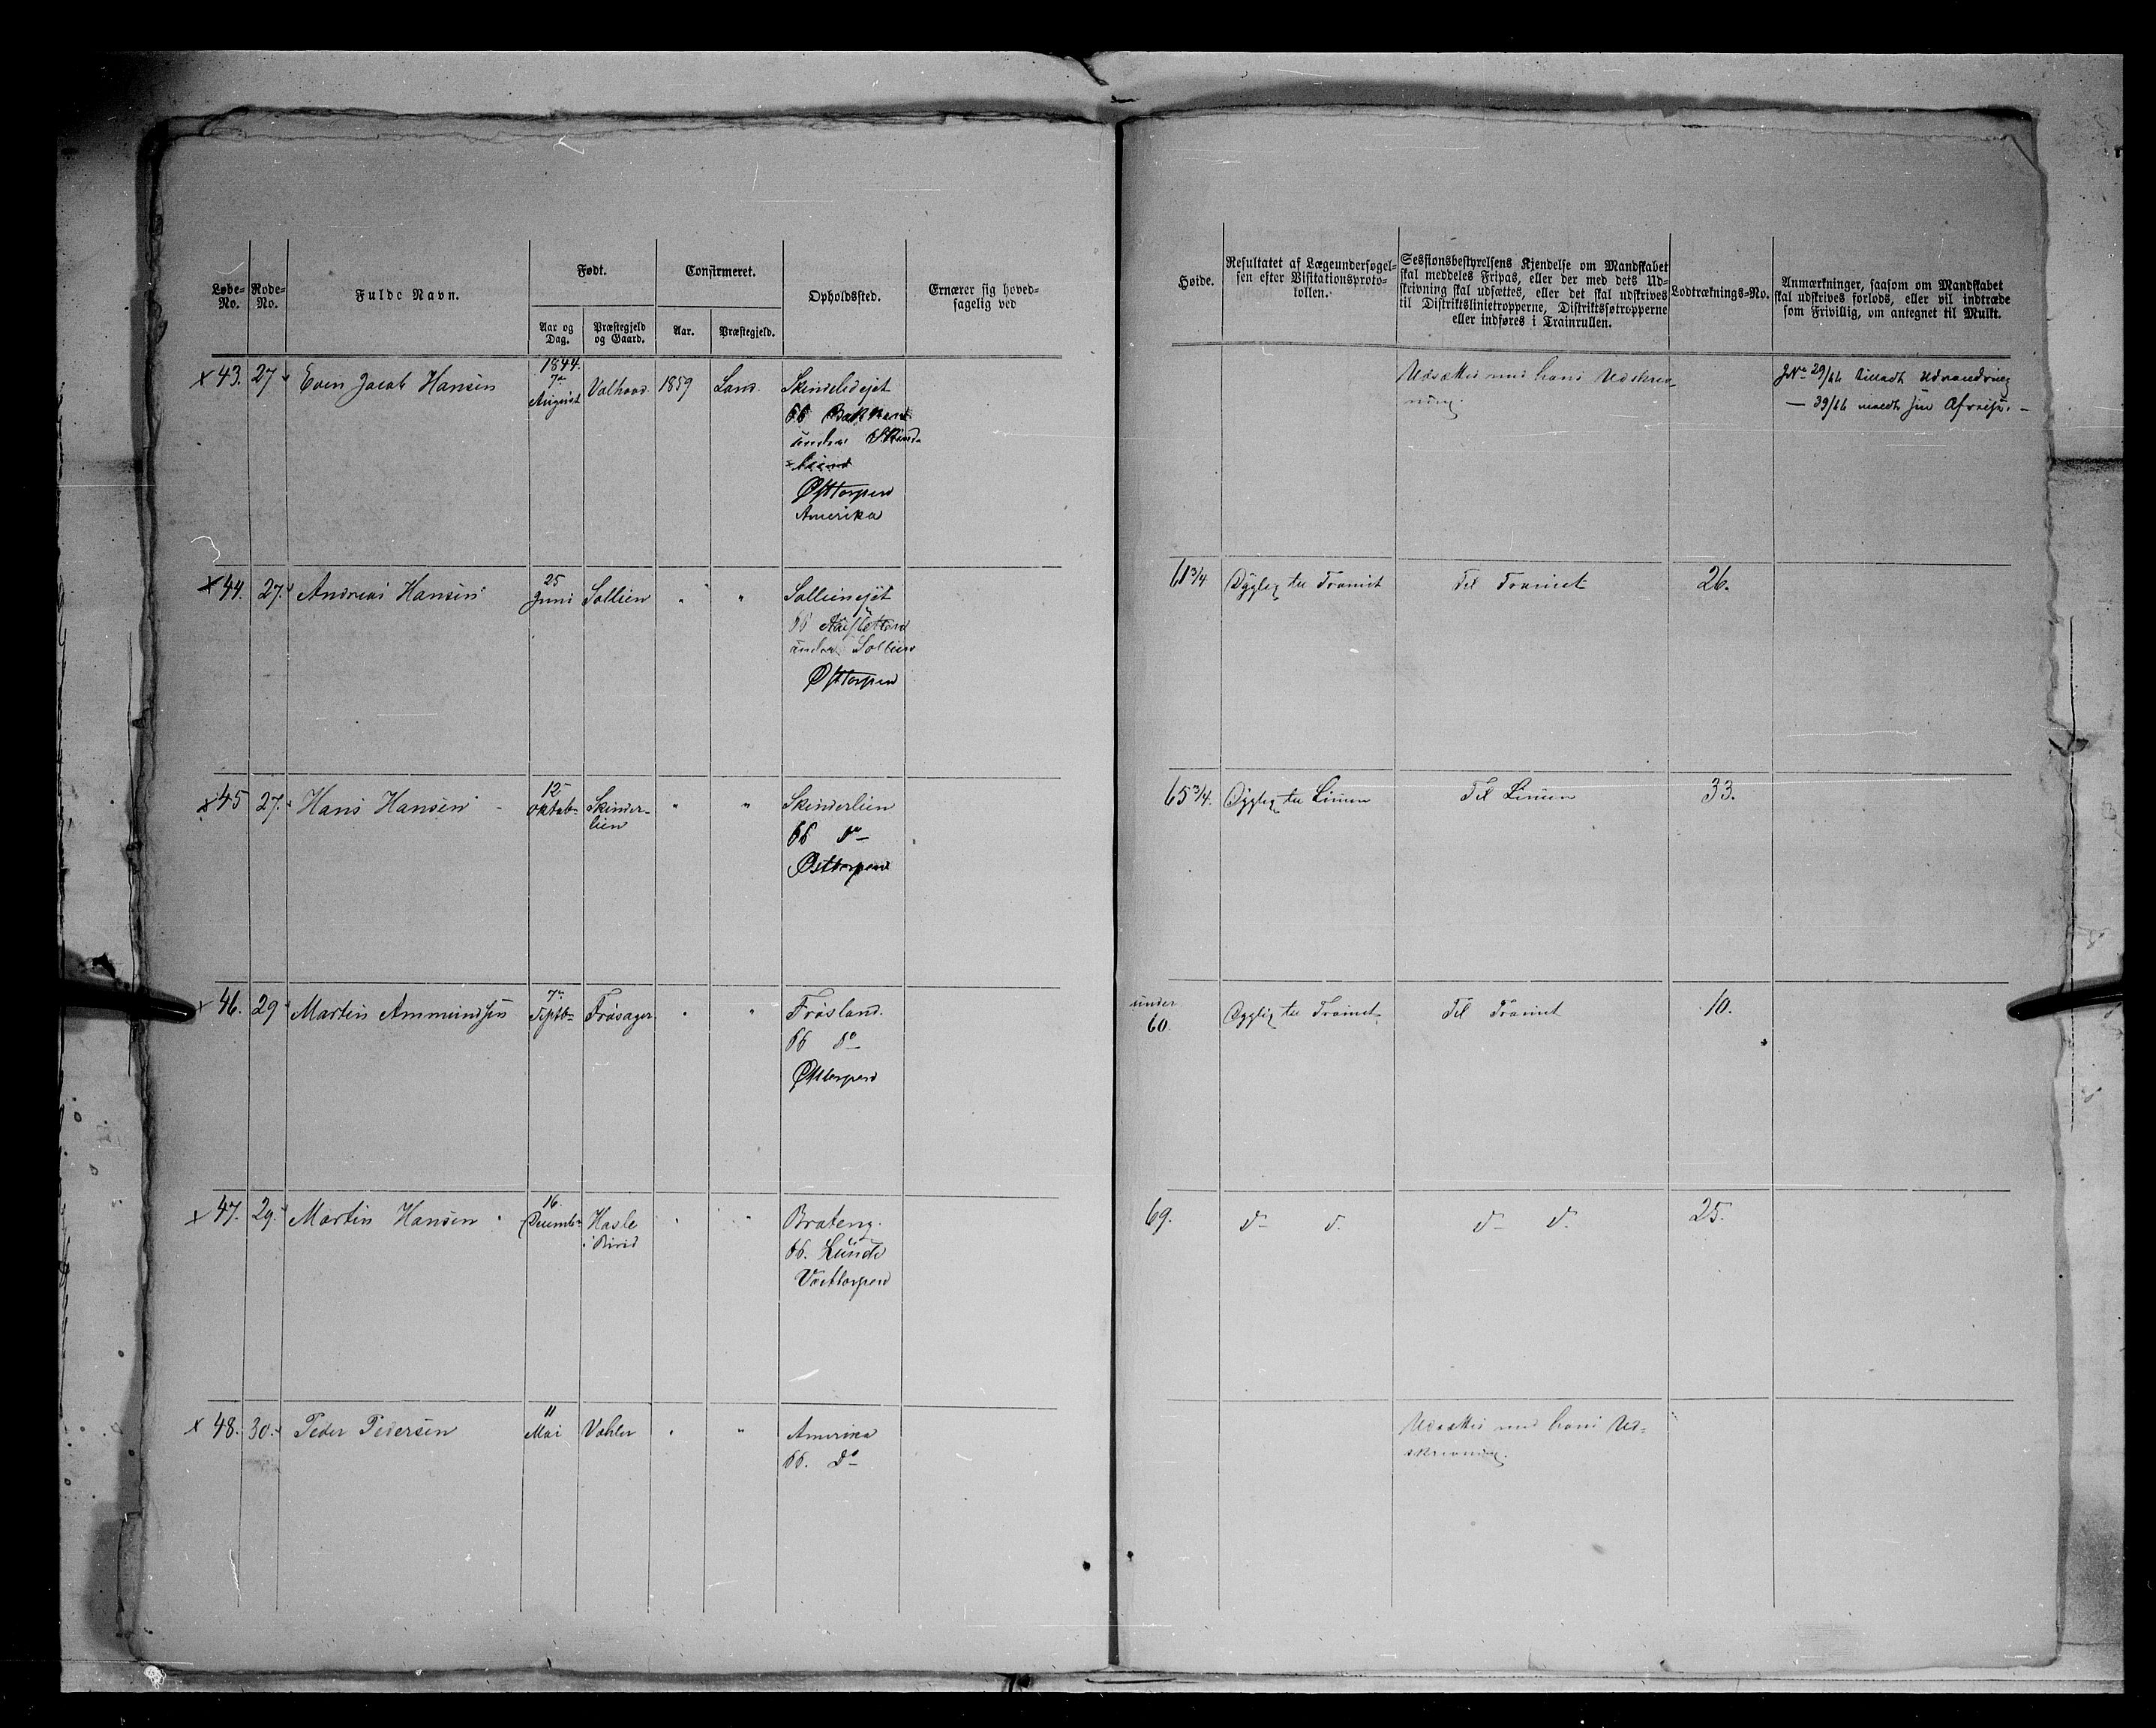 Løbe-No.
Rode-No.
Fulde Navn.
Født.
Aar og Dag.
Præstegjeld og Gaard.
Confirmeret.
Aar.
Præstegjeld.
Opholdssted.
Ernærer sig hoved-
sagelig ved
Høide.
Resultatet af Lægeundersøgel-
sen efter Visitationsproto-
kollen.
Sessionsbestyrelsens Kjendelse om Mandskabet
skal meddeles Fripas, eller der med dets Ud-
skrivning skal udsættes, eller det skal udskrives
til Distriktslinietropperne, Distriktsfotropperne
eller indføres i Trainrullen.
Lodtræknings-No.
Anmærkninger, saasom om Mandskabet
skal udskrives forlods, eller vil indtræde
som Frivillig, om antegnet til Mulkt.
1844.
x 43. 27 Even Jacob Hansen 7de August Valhovd 1859 Land. Skindelidsejet
66 Bakken
under Skinde-
Østtorpen
Amerika
Udsættes med hans Udskriv-
ning.
JNo 29/66 tilladt Udvandring
— 39/66 meldt sin Afreise. —
x 44. 27. Andreas Hansen 25 Juni Sollien " " Sollienejet
66
under Sollien
Østtorpen
61 3/4 Dygtig til Trainet Til Trainet 26.
x 45 27. Hans Hansen 12 Oktob- Skinder-
lien " " Skinderlien
66 do
Østtorpen
65 3/4. Dygtig til Linien Til Linien 33.
x 46. 29 Martin Ammundsen 7de Septb- Frøsager " " Frøsland.
66 do
Østtorpen
under
60. Dygtig til Trainet Til Trainet 10.
x 47. 29. Martin Hansen 16. Decemb- Hasle
i Birid " " Brateng.
66. Lunde
Vesttorpen
69. d- d. d- d. 25.
x 48. 30. Peder Pedersen 11 Mai Vøhler " " Amerika
66. do
Udsættes med hans Ud-
skrivning.